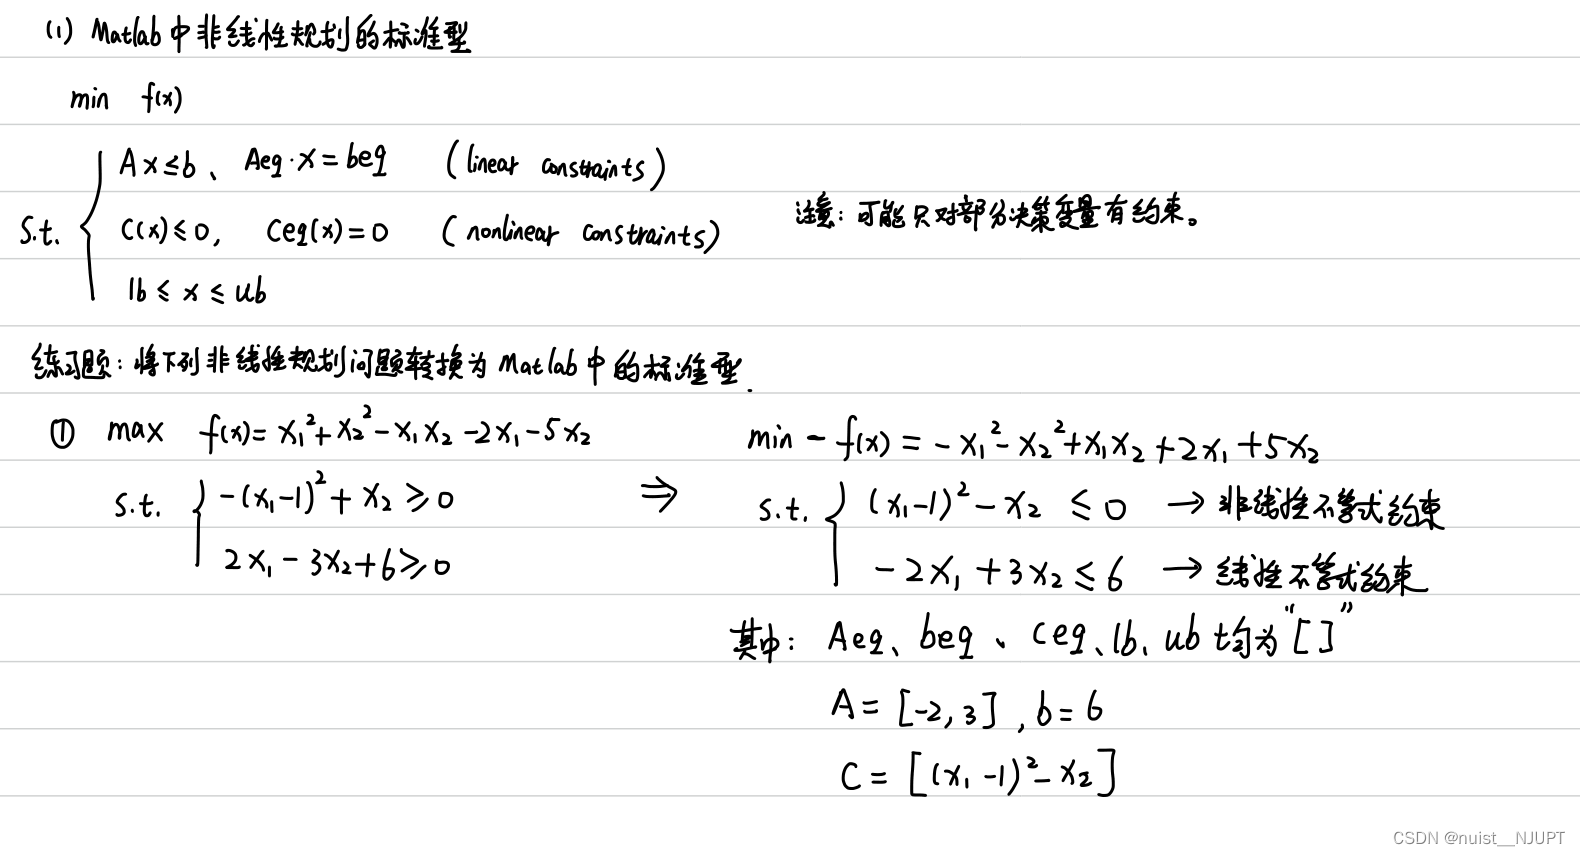 (1) Matlab中非线性规划的标准型
min f(x)
s.t. { Ax≤b、Aeq·x=beq (linear constraints)
C(x)≤0, Ceq(x)=0 (nonlinear constraints)
lb≤x≤ub
注意:可能只对部分决策变量有约束。
练习题:将下列非线性规划问题转换为Matlab中的标准型.
① max f(x)=x₁²+x₂²-x₁x₂-2x₁-5x₂
s.t. { -(x₁-1)²+x₂≥0
2x₁-3x₂+6≥0
⇒
min -f(x)=-x₁²-x₂²+x₁x₂+2x₁+5x₂
s.t. { (x₁-1)²-x₂≤0 →非线性不等式约束
-2x₁+3x₂≤6 →线性不等式约束
其中: Aeq、beq、Ceq、lb、ub均为“[]”
A=[-2,3],b=6
C=[(x₁-1)²-x₂]
CSDN @nuist__NJUPT